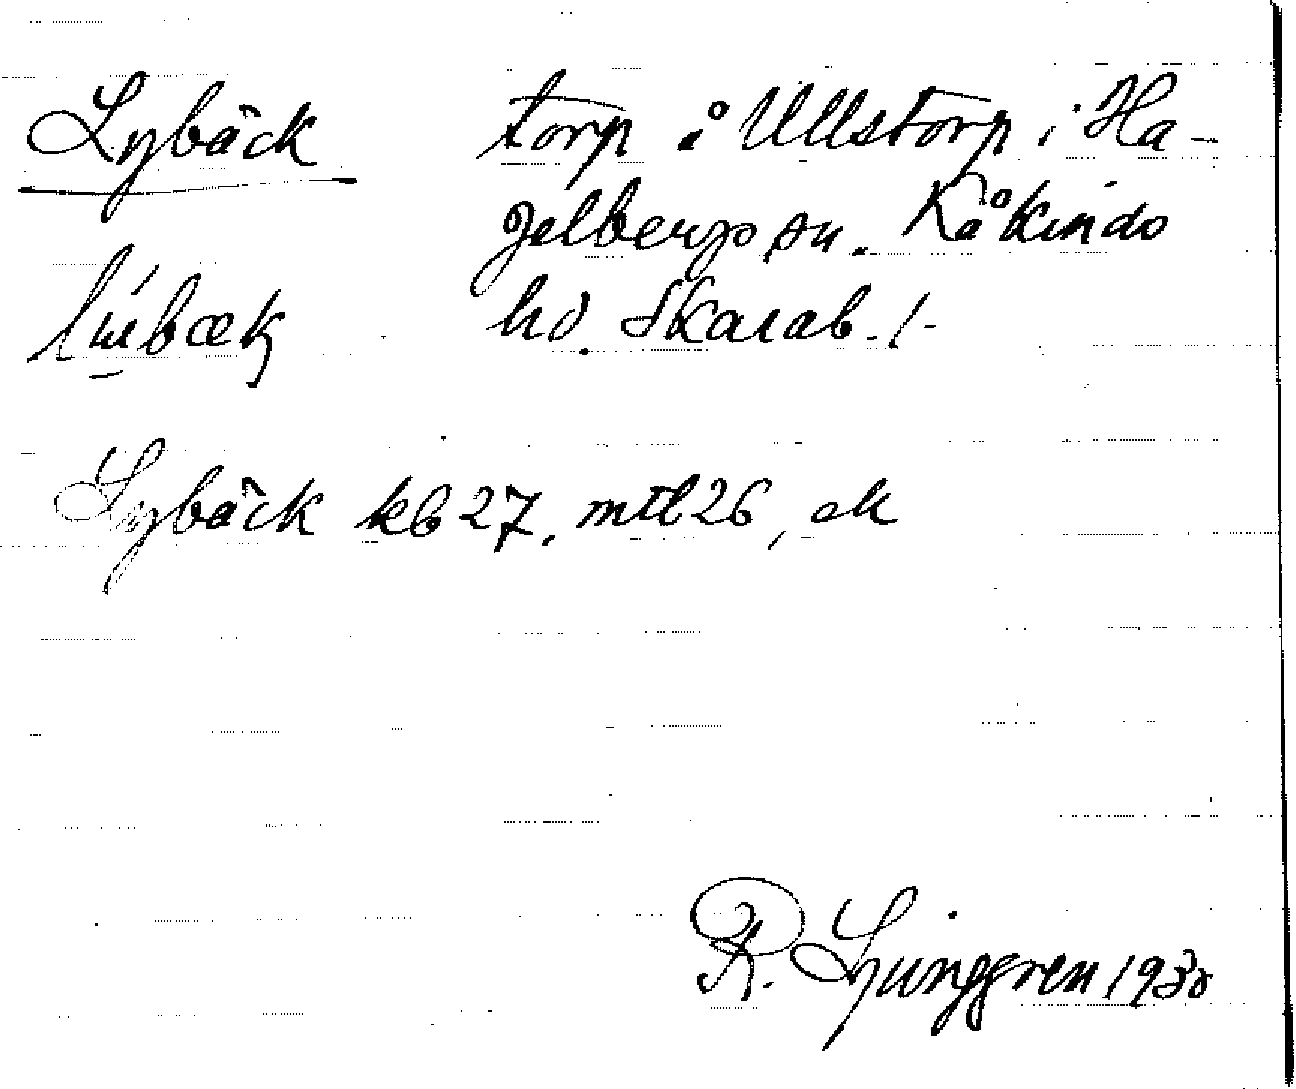 Lybäck torp å Ullstorp i Ha-
gelbergs sn. Kåkinds
hd. Skarab. l.
Lybäck kb 27, mtl 26, ek
R. Ljunggren 1930